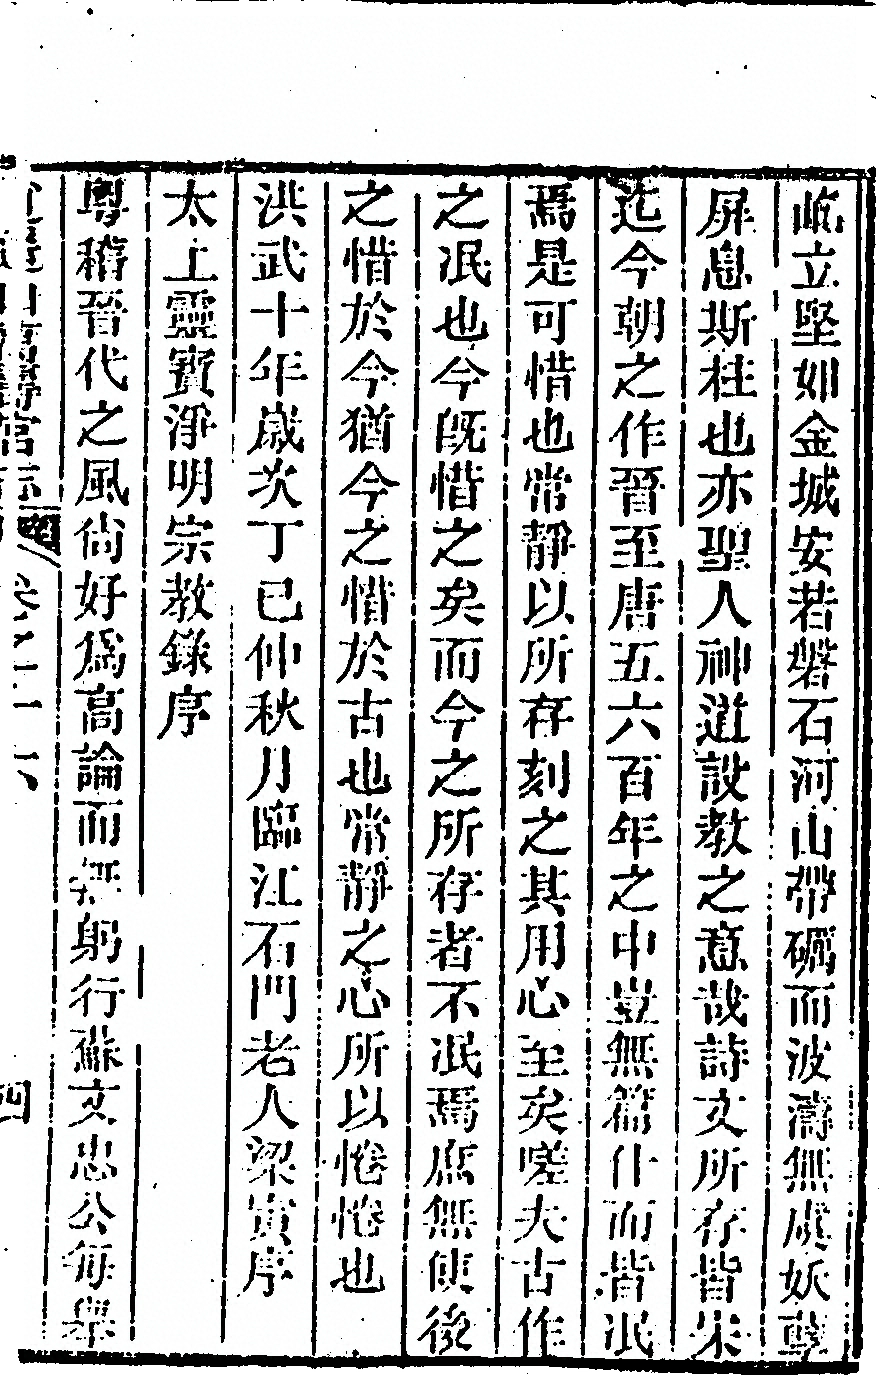 屹立堅如金城安若磐石河山帶礪而波濤無虞妖孽
屏息斯柱也亦聖人神道設教之意哉詩文所存皆宋
迄今朝之作晉至唐五六百年之中豈無篇什而皆泯
焉是可惜也常靜以所存刻之其用心至矣嗟夫古作
之泯也今旣惜之矣而今之所存者不泯焉庶無使後
之惜於今猶今之惜於古也常靜之心所以惓惓也
洪武十年歲次丁巳仲秋月臨江石門老人梁寅序
太上靈寶淨明宗教錄序
粵稽晉代之風尚好爲高論而無躬行蘇文忠公每舉
逍遙山萬壽宮志 卷之十六 四